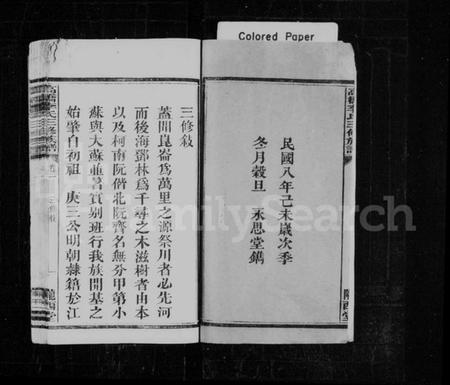 Colored Paper
民國八年己未歲次季
冬月穀旦 永思堂鐫
三修敘
蓋聞崑崙為萬里之源祭川者必先河
而後海鄧林為千尋之木滋樹者由本
以及柯南阮偕北阮齊名無分甲第小
蘇與大蘇並著實別班行我族開基之
始肇自初祖 庚三公明朝隸籍於江
FamilySearch